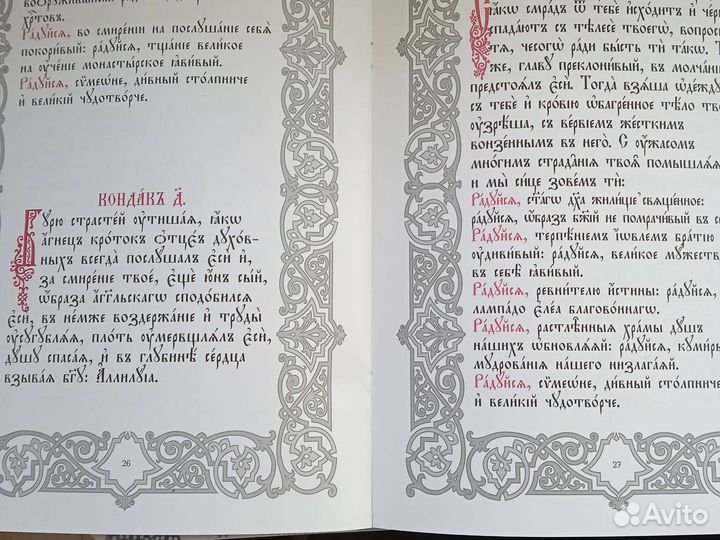 хрⷭ҇товъ.
Ра́дуйся, во смире́нїи на послꙋша́нїе себѧ̀
покори́вый: ра́дꙋйсѧ, тща́нїе вели́кое
на ᲂу҆че́нїе монасты́рское ꙗ҆ви́вый.
Ра́дꙋйсѧ, сѷмеѡ́не, ди́вный сто́лпниче
и҆ вели́кїй чꙋдотво́рче.
КОНДА́КЪ Д҃.
Бꙋ́рю страсте́й ᲂу҆тиша́ѧ, ꙗ҆́кѡ
а҆́гнецъ кро́токъ ѻ҆тцє́въ дꙋхо́в-
ныхъ всегда̀ послꙋ́шалъ є҆сѝ и҆̀,
за смире́нїе твоѐ, є҆щѐ ю҆́нъ сы́й,
ѡ҆́браза а҆́гг҃льскагѡ сподо́билсѧ
є҆сѝ, въ не́мже воздержа́нїе и҆ трꙋды̀
ᲂу҆сꙋгꙋблѧ́ѧ, пло́ть ᲂу҆мерщвлѧ́лъ є҆сѝ,
дꙋ́шꙋ спаса́ѧ, и҆ въ глꙋбинѣ̀ се́рдца
взыва́ѧ бг҃ꙋ: А҆ллилꙋ́їа.
26
ꙗ҆́кѡ смра́дъ ѿ тебє̀ и҆схо́дитъ и҆
спа́даютъ съ тѣлесѐ твоегѡ̀,
тѧ̀, чесогѡ̀ ра́ди бы́сть тѝ та́кѡ.
же, главꙋ̀ преклони́вый, въ молча́н
предстоѧ́лъ є҆сѝ. Тогда̀ взѧ́ша ѻ҆де́ждꙋ
съ тебє̀ и҆ кро́вїю ѡ҆багре́нное тѣ́ло тво
ᲂу҆зрѣ́ша, съ ве́рвїемъ же́сткимъ
вонзе́ннымъ въ него̀. Съ ᲂу҆́жасомъ
мнѡ́гимъ страда̑нїѧ твоѧ̑ помышлѧ́ѧ
и҆ мы̀ си́це зове́мъ тѝ:
Ра́дꙋйсѧ, ст҃а́гѡ дх҃а жили́ще свѧще́нное:
ра́дꙋйсѧ, ѡ҆́бразъ бж҃їй не помрачи́вый въ с
Ра́дꙋйсѧ, терпѣ́нїемъ і҆́ѡвлемъ бра́тїю
ᲂу҆диви́вый: ра́дꙋйсѧ, вели́кое мꙋ́жеств
въ себѣ̀ ꙗ҆ви́вый.
Ра́дꙋйсѧ, ревни́телю и҆́стины: ра́дꙋйсѧ,
лампа́до є҆ле́а благово́ннагѡ.
Ра́дꙋйсѧ, растлѣ̑нныѧ хра́мы дꙋ́шъ
на́шихъ ѡ҆бновлѧ́ѧй: ра́дꙋйсѧ, кꙋми́ры
мꙋдрова́нїѧ на́шегѡ низлага́ѧй.
Ра́дꙋйсѧ, сѷмеѡ́не, ди́вный сто́лпниче
и҆ вели́кїй чꙋдотво́рче.
27
Avito